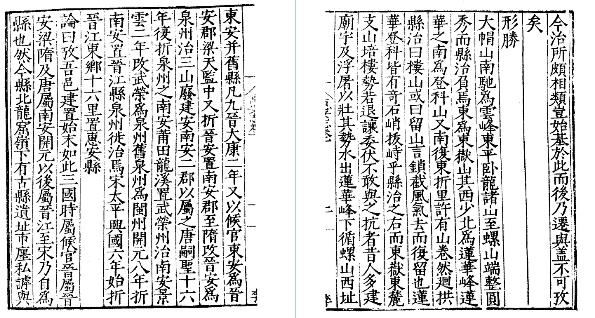 今治所頗相類豈始基於此而後乃遷與蓋不可攷
矣
形勝
大帽山南馳為雲峰東平卧龍諸山至螺山端整圓
秀而縣治負焉東為東嶽山其西少北為蓮華峰蓮
華之南為登科山又南復東折里許有山巻然迴拱
縣治曰樓山或曰留山言鎖截風氣去而復留也蓮
華登科皆有奇石峭拔峙乎縣治之右而東嶽東麓
支山培塿勢若退讓委伏不敢與之抗者昔人多建
廟宇及浮屠以壯其勢水出蓮華峰下循螺山西址
東安并舊縣凡九晉太康二年又以候官東安為晉
安郡梁天監中又折晉安置南安郡至隋改晉安為
泉州治三山廢建安南安二郡以屬之唐嗣聖十六
年後折泉州之南安莆田龍溪置武榮州治南安景
雲二年改武榮為泉州舊泉州為閩州開元八年折
南安置晉江縣泉州徙治焉宋太平興國六年始折
晉江東鄉十六里置惠安縣
論曰攷吾邑建置始末如此三國時屬候官晉屬晉
安梁隋及唐屬南安開元以後屬晉江至宋乃自為
縣也然今縣北龍窟嶺下有古縣遺址市廛私謔與